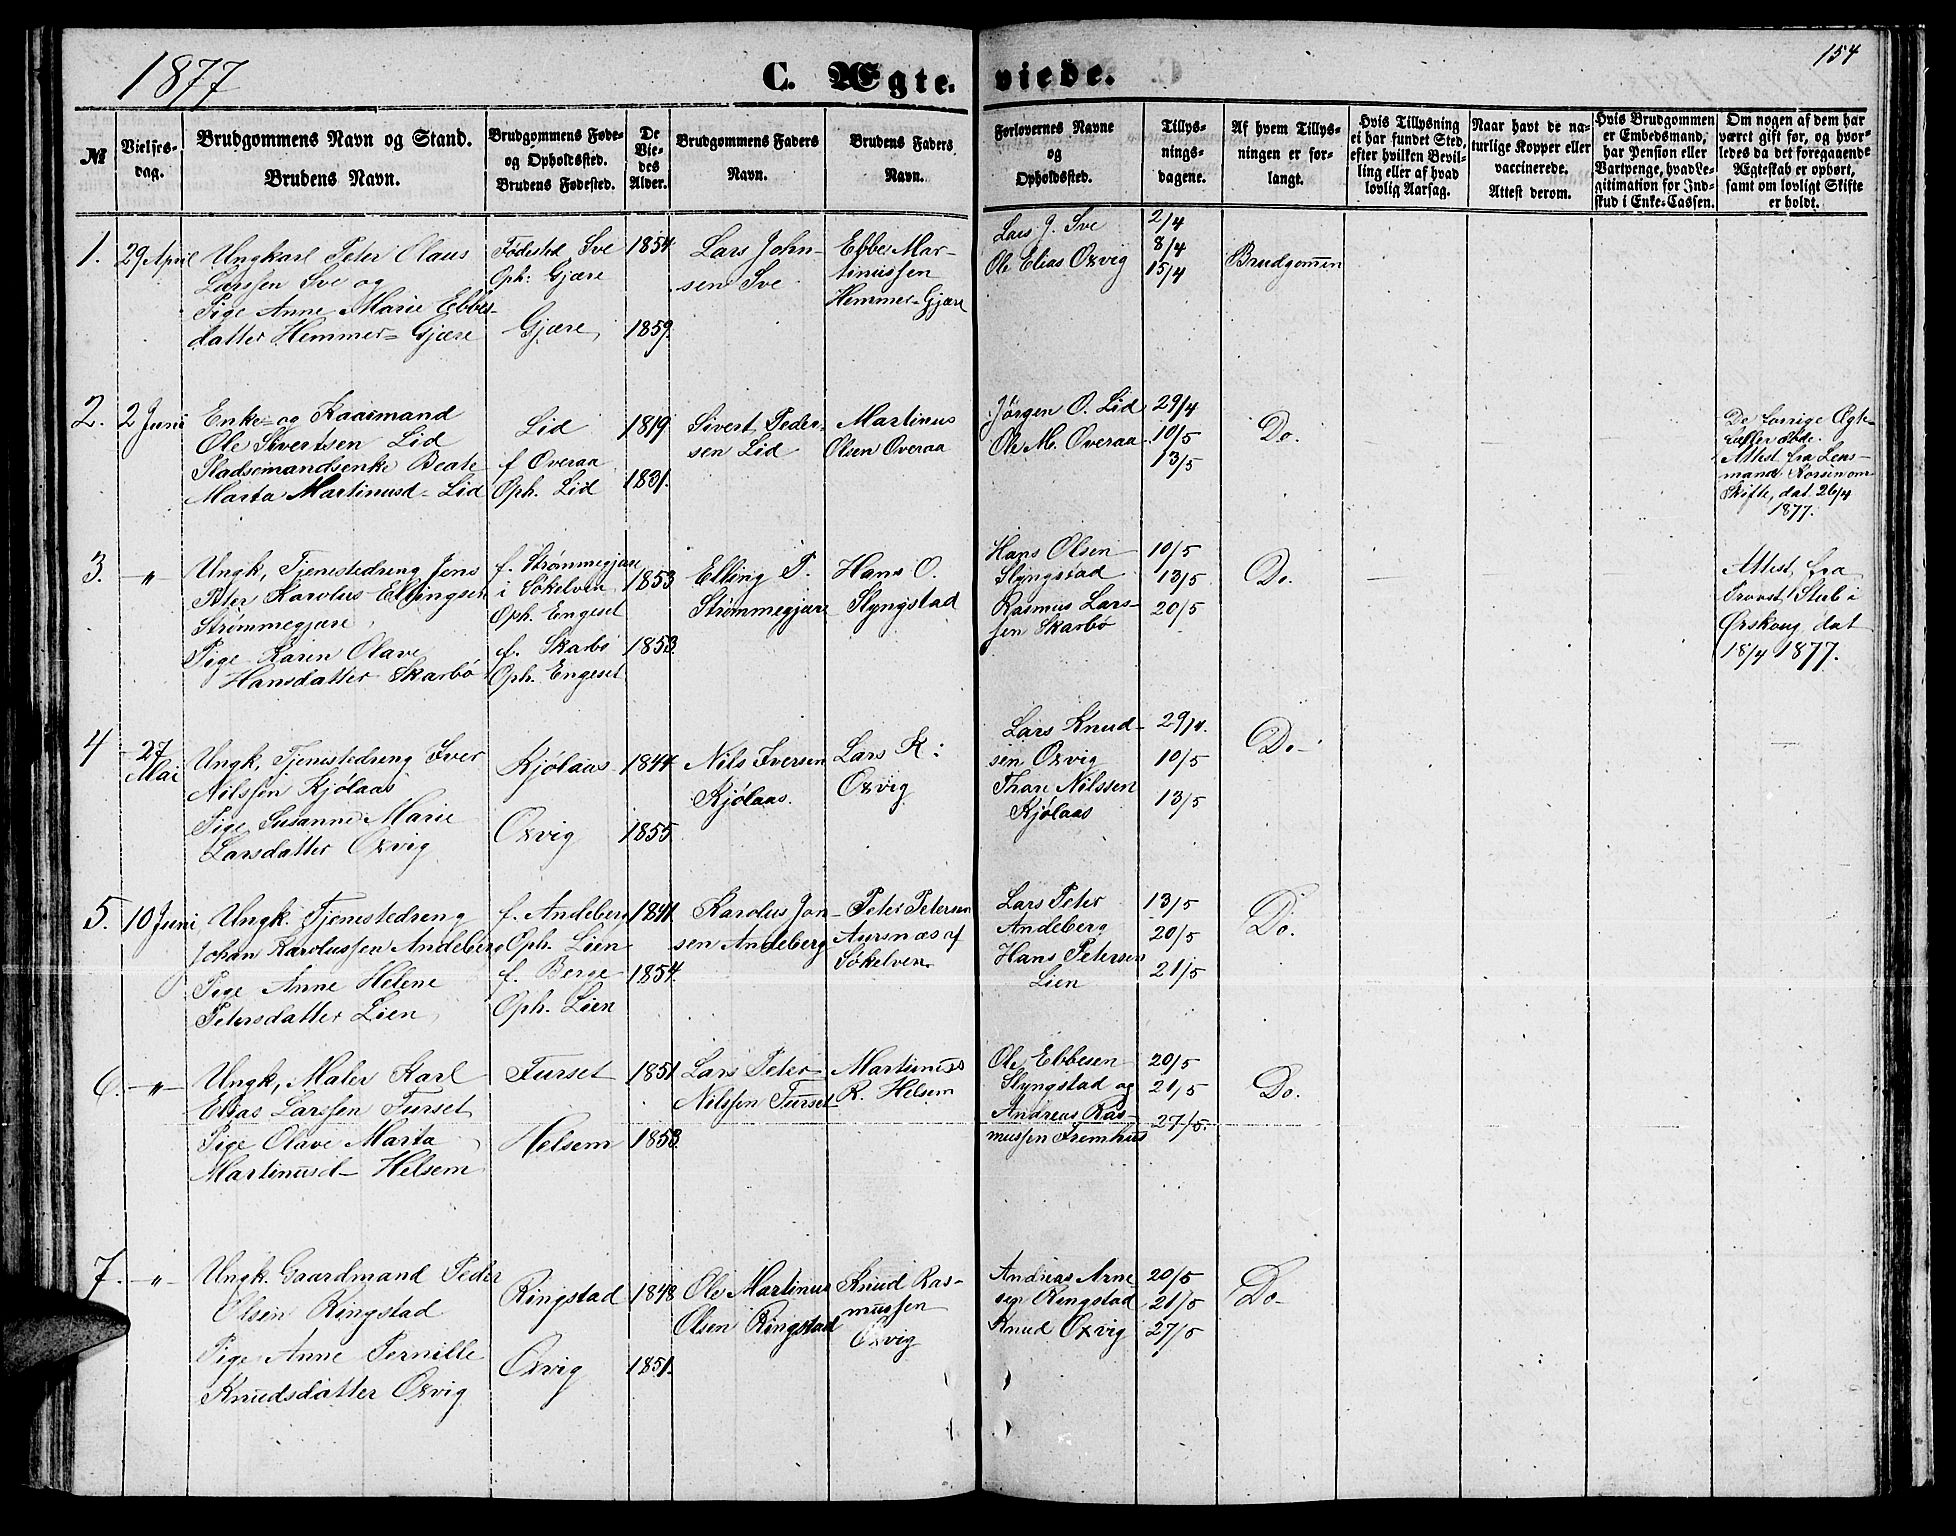 1877
C. Ægte-
viede.
154
№
Vielses-
dag.
Brudgommens Navn og Stand.
Brudens Navn.
Brudgommens Føde-
og Opholdssted.
Brudens Fødested.
De
Vie-
des
Alder.
Brudgommens Faders
Navn.
Brudens Faders
Navn.
Forlovernes Navne
og
Opholdssted.
Tillys-
nings-
dagene.
Af hvem Tillys-
ningen er for-
langt.
Hvis Tillysning
ei har fundet Sted,
efter hvilken Bevil-
ling eller af hvad
lovlig Aarsag.
Naar havt de na-
turlige Kopper eller
vaccinerede.
Attest derom.
Hvis Brudgommen
er Embedsmand,
har Pension eller
Vartpenge, hvad Le-
gitimation for Ind-
skud i Enke-Cassen.
Om nogen af dem har
været gift før, og hvor-
ledes da det foregaaende
Ægteskab er ophørt,
samt om lovligt Skifte
er holdt.
1.
29 April
Ungkarl Peter Olaus
Larssen Sve og
Pige Anne Marie Ebbes-
datter Hemmer=Gjære
Fødested Sve
Oph: Gjære
Gjære,
1854.
1859.
Lars John-
sen Sve
Ebbe Mar-
tinussen
Hemmer-Gjære
Lars J. Sve
Ole Elias Oxvig
2/4
8/4
15/4
Brudgommen
2.
2 Juni
Enke- og Kaarmand
Ole Sivertsen Lid
Stadsemandsenke Beate
Marta Martinusd- Lid
Lid
f Overaa
Oph. Lid
1819
1831.
Sivert Peder-
sen Lid
Martinus
Olsen Overaa
Jørgen O. Lid
Ole M. Overaa
29/4
10/5
13/5
Do.
De forrige Ægte-
fæller døde.
Attest fra Lens-
mand Korsen om
Skifte, dat. 26/4
1877.
3.
-„-
Ungk, Tjenestedreng Jens
Peter Karolus Ellingsen
Strømmegjære,
Pige Karen Olave
Hansdatter Skarbø
f. Strømmegjære
i Søkelven
Oph. Engeset
f. Skarbø
Oph. Engeset
1853
1853.
Elling P.
Strømmegjære
Hans O.
Slyngstad
Hans Olsen
Slyngstad
Rasmus Lars-
sen Skarbø
10/5
13/5
20/5
Do.
Attest fra
Provst Stub i
Ørskoug dat
18/4 1877.
4
27
Mai
Ungk, Tjenestedreng Iver
Nilssen Kjølaas
Pige Susanne Marie
Larsdatter Oxvig
Kjølaas
Oxvig
1844
1855
Nils Iversen
Kjølaas.
Lars K:
Oxvig
Lars Knud-
sen Oxvig
Thore Nilssen
Kjølaas
29/4.
10/5
13/5
Do-
5.
10 Juni
Ungk. Tjenestedreng
Johan Karolussen Andeberg
Pige Anne Helene
Petersdatter Lien,
f. Andeberg
Oph. Lien
f. Berge
Oph. Lien
1841.
1854.
Karolus Jon-
sen Andeberg
Peter Petersen
Aursnæs af
Søkelven.
Lars Peter
Andeberg
Hans Petersen
Lien
13/5
20/5
21/5
Do.
6.
-„-
Ungk, Maler Karl
Elias Larssen Furset
Pige Olave Marta
Martinusd- Helsem
Furset
Helsem
1851
1853.
Lars Peter
Nilssen Furset
Martinus
R. Helsem
Ole Ebbesen
Slyngstad og
Andreas Ras-
mussen Fremhus
20/5
21/5
27/5.
Do.
7.
-„-
Ungk. Gaardmand Peder
Olsen Ringstad
Pige Anne Pernille
Knudsdatter Oxvig
Ringstad
Oxvig
1848
1851.
Ole Martinus
Olsen Ringstad
Knud Ras-
mussen
Oxvig
Andreas Arne
sen Ringstad
Knud Oxvig
20/5
21/5
27/5
Do-